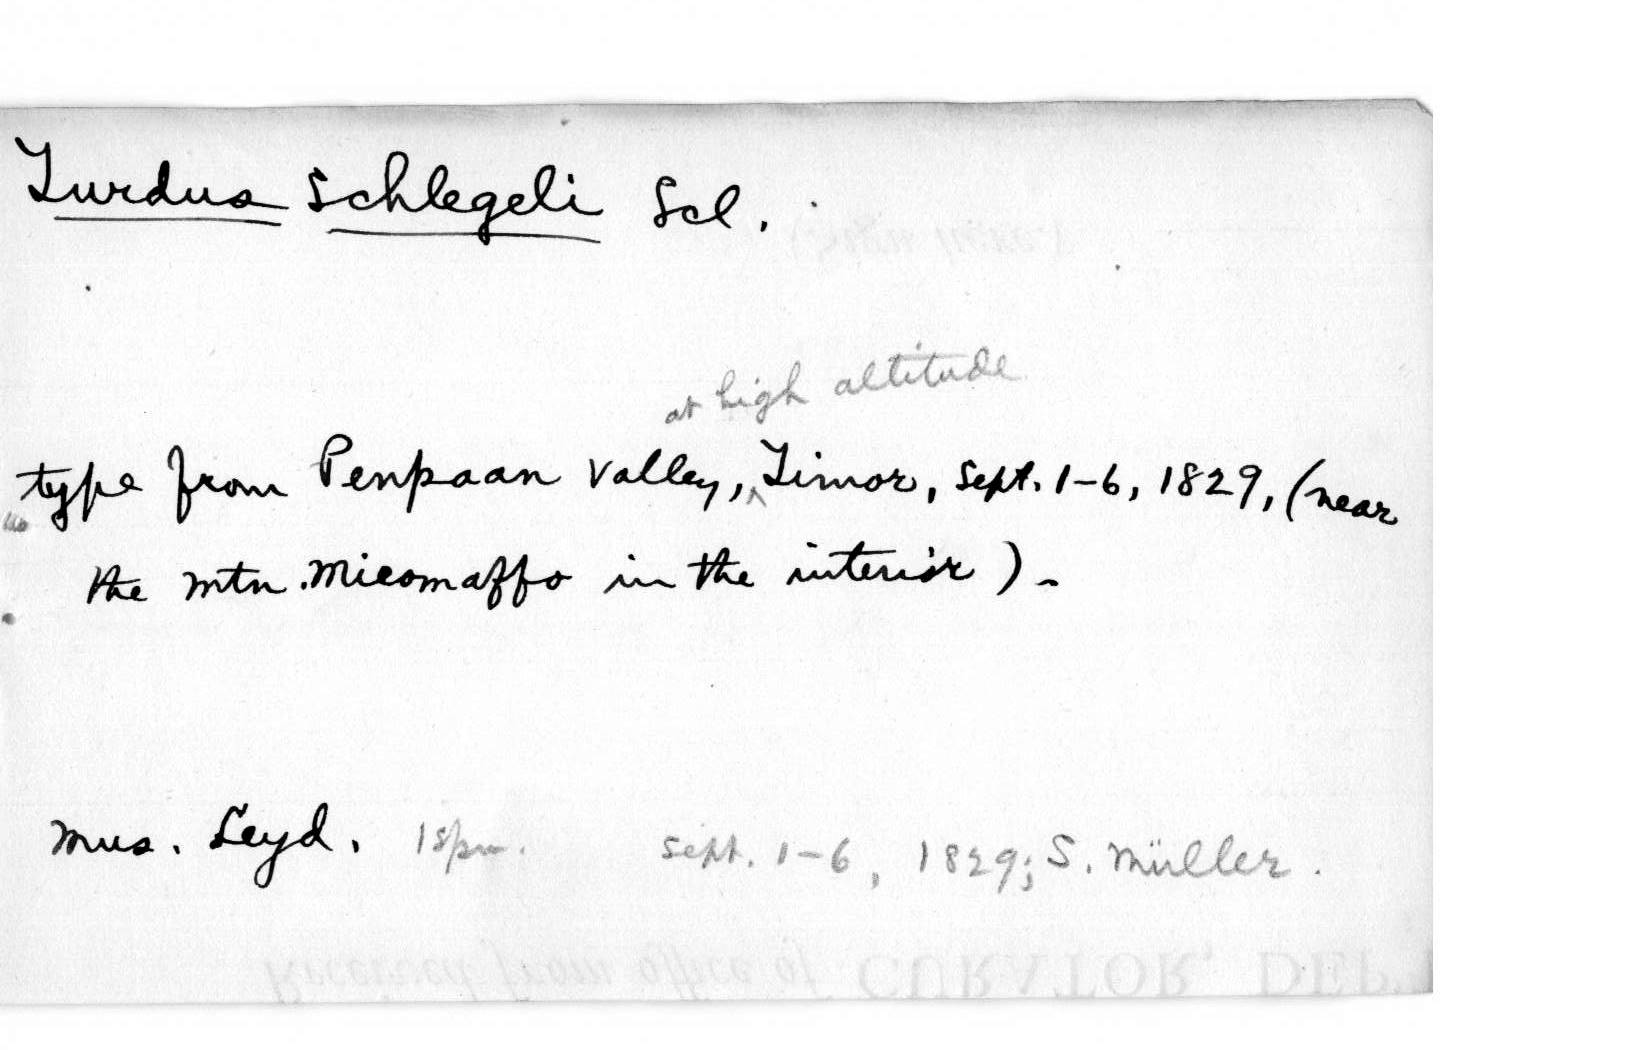 Turdus schlegeli Scl.
at high altitude
type from Penpaan valley, ^ Timor, Sept. 1-6, 1829, (near
the mtn. Mieomaffo in the interior).
Mus. Leyd. 1 spm. Sept. 1-6, 1829; S. Müller.
Received from office of CURATOR, DEP.